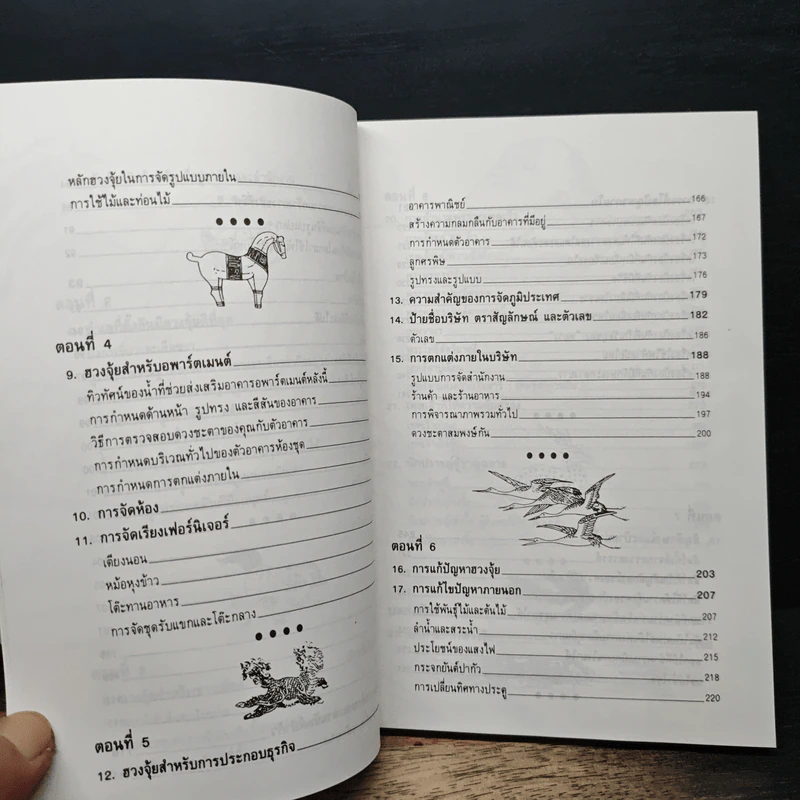 หลักฮวงจุ้ยในการจัดรูปแบบภายใน
การใช้ไม้และท่อนไม้
ตอนที่ 4
9. ฮวงจุ้ยสำหรับอพาร์ตเมนต์
ทิวทัศน์ของน้ำที่ช่วยส่งเสริมอาคารอพาร์ตเมนต์หลังนี้
การกำหนดด้านหน้า รูปทรง และสีสันของอาคาร
วิธีการตรวจสอบดวงชะตาของคุณกับตัวอาคาร
การกำหนดบริเวณทั่วไปของตัวอาคารห้องชุด
การกำหนดการตกแต่งภายใน
10. การจัดห้อง
11. การจัดเรียงเฟอร์นิเจอร์
เตียงนอน
หม้อหุงข้าว
โต๊ะทานอาหาร
การจัดชุดรับแขกและโต๊ะกลาง
ตอนที่ 5
12. ฮวงจุ้ยสำหรับการประกอบธุรกิจ
อาคารพาณิชย์ 166
สร้างความกลมกลืนกับอาคารที่มีอยู่ 167
การกำหนดตัวอาคาร 172
ลูกศรพิษ 173
รูปทรงและรูปแบบ 176
13. ความสำคัญของการจัดภูมิประเทศ 179
14. ป้ายชื่อบริษัท ตราสัญลักษณ์ และตัวเลข 182
ตัวเลข 186
15. การตกแต่งภายในบริษัท 188
รูปแบบการจัดสำนักงาน 188
ร้านค้า และร้านอาหาร 194
การพิจารณาภาพรวมทั่วไป 197
ดวงชะตาสมพงษ์กัน 200
ตอนที่ 6
16. การแก้ปัญหาฮวงจุ้ย 203
17. การแก้ไขปัญหาภายนอก 207
การใช้พันธุ์ไม้และต้นไม้ 207
ลำน้ำและสระน้ำ 212
ประโยชน์ของแสงไฟ 215
กระจกยันต์ปากัว 218
การเปลี่ยนทิศทางประตู 220